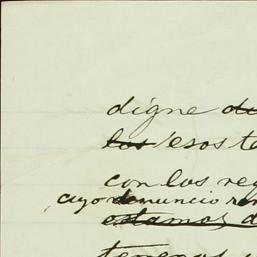 digne de
los esos te
con los reg
cuyo denuncio ren
estamos d
tenemos